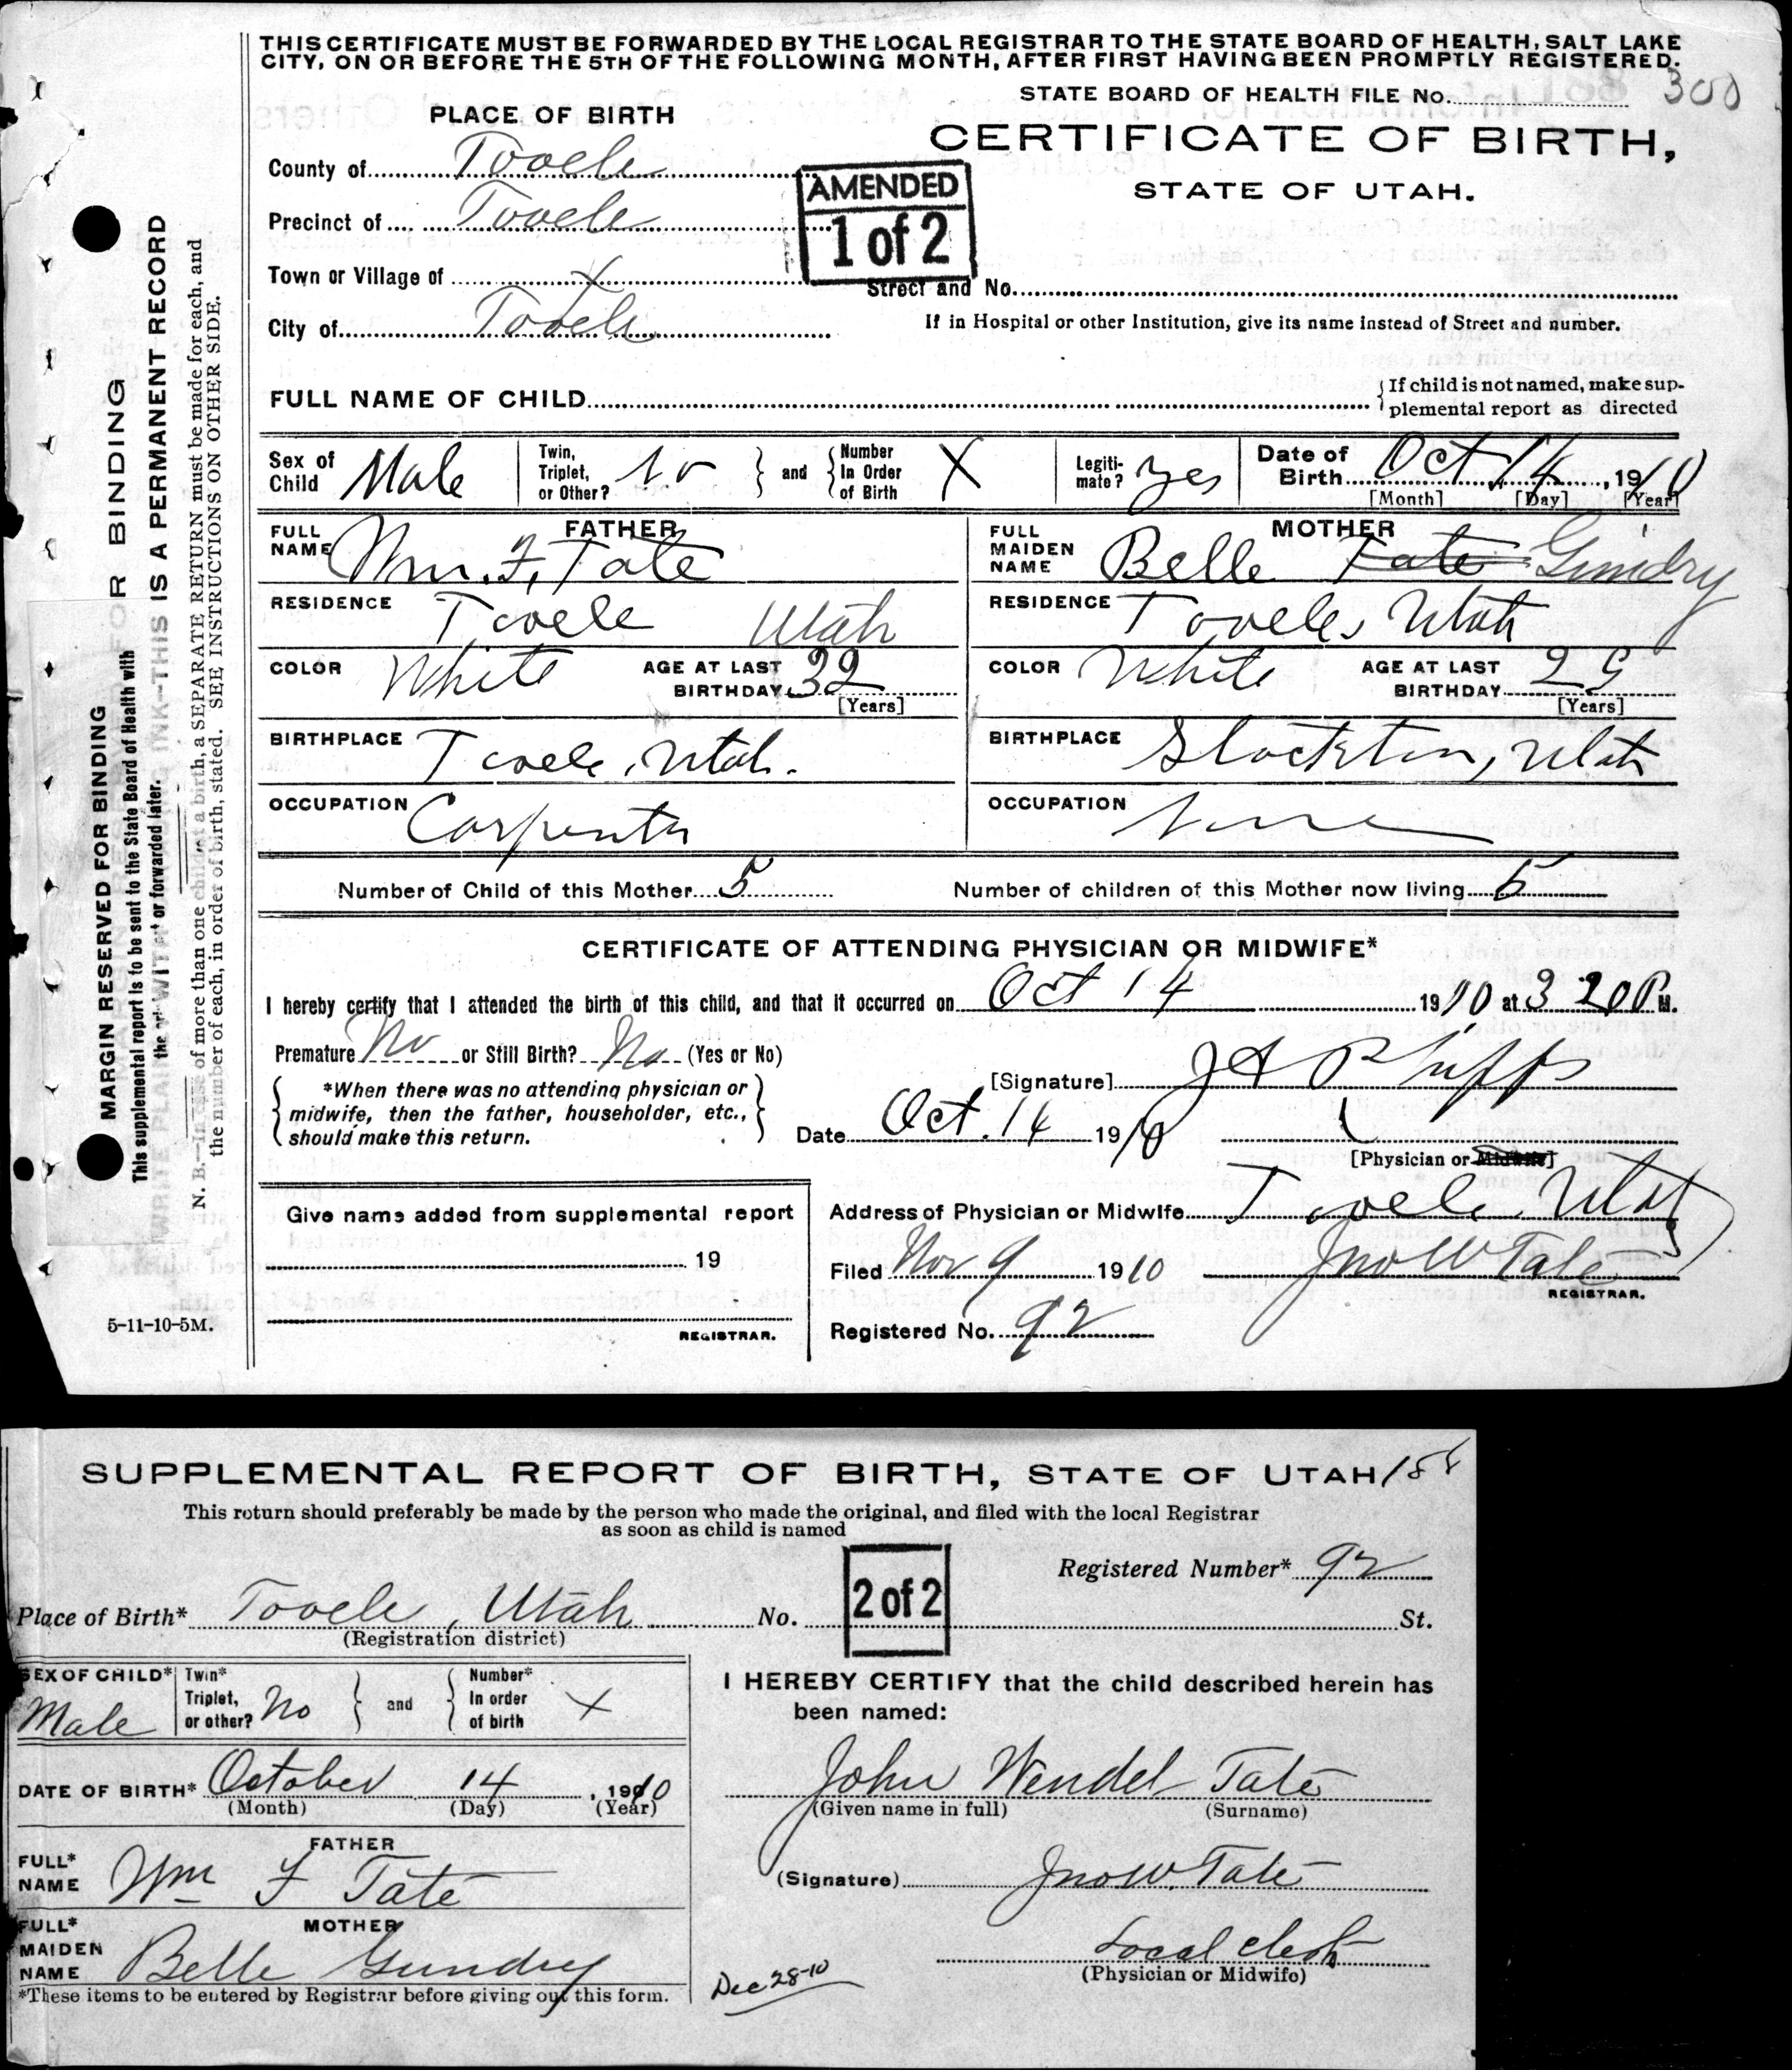 THIS CERTIFICATE MUST BE FORWARDED BY THE LOCAL REGISTRAR TO THE STATE BOARD OF HEALTH, SALT LAKE
CITY, ON OR BEFORE THE 5TH OF THE FOLLOWING MONTH, AFTER FIRST HAVING BEEN PROMPTLY REGISTERED.
STATE BOARD OF HEALTH FILE No. 300
PLACE OF BIRTH
CERTIFICATE OF BIRTH,
STATE OF UTAH.
County of Tooele
AMENDED
1 of 2
Precinct of Tooele
Town or Village of X
Street and No.
City of Tooele
If in Hospital or other Institution, give its name instead of Street and number.
FULL NAME OF CHILD
If child is not named, make sup-
plemental report as directed
Sex of Child Male
Twin, Triplet, or Other? no and Number In Order of Birth X
Legiti-mate? yes
Date of Birth Oct 14, 1910
[Month] [Day] [Year]
FATHER
FULL NAME Wm. F. Tate
MOTHER
FULL MAIDEN NAME Belle Tate Gundry
RESIDENCE Tooele Utah
RESIDENCE Tooele, Utah
COLOR White AGE AT LAST BIRTHDAY 32 [Years]
COLOR White AGE AT LAST BIRTHDAY 29 [Years]
BIRTHPLACE Tooele, Utah.
BIRTHPLACE Stockton, Utah
OCCUPATION Carpenter
OCCUPATION None
Number of Child of this Mother 5 Number of children of this Mother now living 5
CERTIFICATE OF ATTENDING PHYSICIAN OR MIDWIFE*
I hereby certify that I attended the birth of this child, and that it occurred on Oct 14 1910 at 3 20 P M.
Premature No or Still Birth? No (Yes or No)
*When there was no attending physician or
midwife, then the father, householder, etc.,
should make this return.
[Signature] J A Phipps
Date Oct. 14 1910
[Physician or Midwife]
Give name added from supplemental report
19
REGISTRAR.
Address of Physician or Midwife Tooele Utah
Filed Nov 9 1910 Jno W Tate
REGISTRAR.
Registered No. 92
5-11-10-5M.
MARGIN RESERVED FOR BINDING
This supplemental report is to be sent to the State Board of Health with
or forwarded later.
R BINDING
INK—THIS IS A PERMANENT RECORD
N. B.—In case of more than one child at a birth, a SEPARATE RETURN must be made for each, and
the number of each, in order of birth, stated. SEE INSTRUCTIONS ON OTHER SIDE.
SUPPLEMENTAL REPORT OF BIRTH, STATE OF UTAH 158
This return should preferably be made by the person who made the original, and filed with the local Registrar
as soon as child is named
2 of 2
Registered Number* 92
Place of Birth* Tooele, Utah No. St.
(Registration district)
SEX OF CHILD* Male
Twin* Triplet, or other? No and Number* In order of birth X
I HEREBY CERTIFY that the child described herein has
been named:
DATE OF BIRTH* October 14, 1910
(Month) (Day) (Year)
John Wendel Tate
(Given name in full) (Surname)
FATHER
FULL* NAME Wm F Tate
(Signature) Jno W. Tate
MOTHER
FULL* MAIDEN NAME Belle Gundry
Local clerk
(Physician or Midwife)
Dec 28-10
*These items to be entered by Registrar before giving out this form.